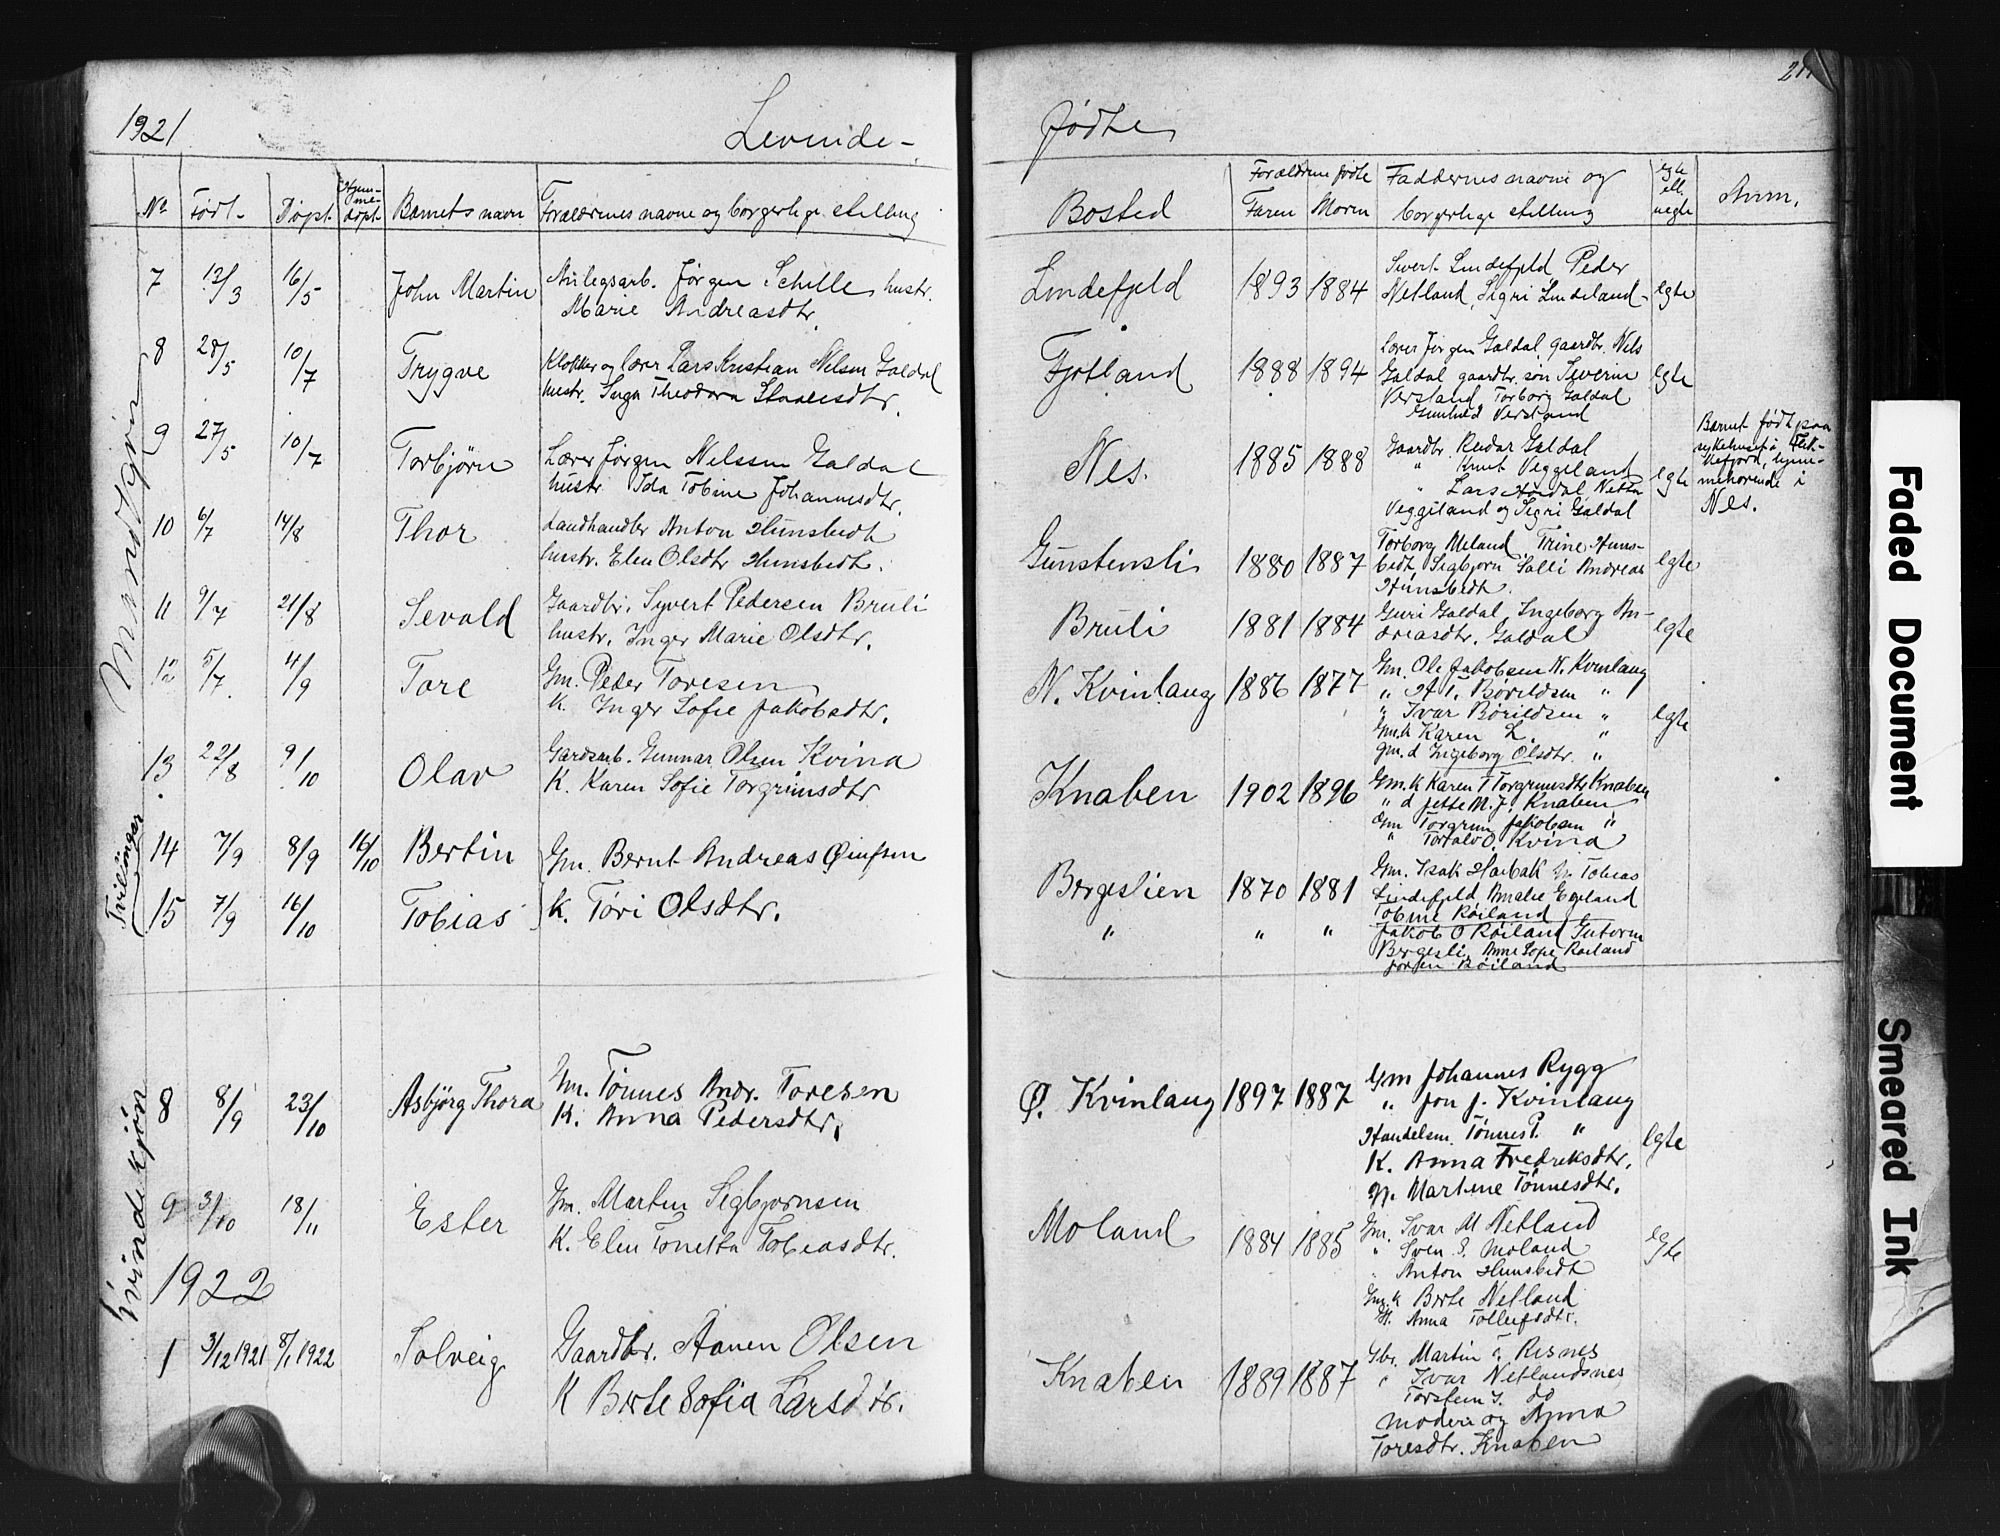 1921
Levende-
No
Født
Døpt
Hjem-
me-
døpt
Barnets navn
Forældrenes navne og borgerlige stilling
Mandkjøn
7
12/3
16/5
John Martin
Anlegsarb. Jørgen Schille hustr.
Marie Andreasdtr.
8
28/5
10/7
Trygve
Klokker og lærer Lars Kristian Nilsen Galdal
hustr. Inga Theodora
9
27/5
10/7
Torbjørn
Lærer Jørgen Nelssen Galdal
hustr. Ida Tobine Johannesdtr.
10
6/7
14/8
Thor
Landhandler Anton Hunsbedt
hustr. Elen Olsdtr Hunsbedt.
11
9/7
21/8
Sevald
Gaardbr. Syvert Pedersen Bruli
hustr. Inger Marie Olsdtr.
12
5/7
4/9
Tore
Gm. Peder Toresen
K. Inger Sofie Jakobsdtr.
13
22/8
9/10
Olav
Gardsarb. Gunnar Olsen Kvina
K. Karen Sofie Torgrimsdtr
Tvillinger
14
7/9
8/9
16/10
Bertin
Gm. Bernt Andreas
15
7/9
16/10
Tobias
K. Tori Olsdtr.
Kvindekjøn
8
8/9
23/10
Asbjørg Thora
Gm. Tønnes Andr. Toresen
K. Anna Pedersdtr.
9
3/10
18/11
Ester
Gm. Martin Sigbjørnsen
K. Elen Tonetta Tobiasdtr.
1922
1
3/12 1921
8/1 1922
Solveig
Gaardbr. Aanen Olsen
K Berte Sofia Larsdtr.
fødte
Bosted
Forældrene fødte
Faren
Moren
Faddernes navne og
borgerlige stilling
egte
ell.
uegte
Anm.
Lindefjeld
1893
1884
Sivert Lindefjeld Peder
Netland, Sigri Lindeland
egte
Fjotland
1888
1894
Lærer Jørgen Galdal, gaardbr. Nils
Galdal gaardbr. søn Severin
Verstand, Torborg Galdal
Gunhild Verstand
egte
Nes.
1885
1888
Gaardbr. Reidar Galdal
" Knut Veggeland
" Lars Netta
Veggeland og Sigri Galdal
egte
Barnet født paa
sykehuset i Flek-
kefjord, hjem-
mehørende i
Nes.
Gunstensli
1880
1887
Torborg Meland Trine Huns-
bedt Sigbjørn Salli Andreas
Hunsbedt.
egte
Bruli
1881
1884
Guri Galdal Ingeborg An-
dreasdtr. Galdal
egte
N. Kvinlaug
1886
1877
Gm. Ole Jakobsen N. Kvinlaug
" Børildsen "
" Ivar Børildsen "
Gm.k Karen L. "
gm. d Ingeborg Olsdtr. "
egte
Knaben
1902
1896
Gm. k Karen T Torgrimsdtr Knaben
" d Jette M. J. Knaben
Gm Torgrim Jakobsen "
" O. Kvina
Bergeslien
1870
1881
Gm. Isak Haibak Tobias
Lindefjeld Amalie Egeland
Tobine Røiland
"
"
"
Jakob O Røiland Gutorm
Bergesli, Anne Sofie Røiland
Jørgen Røiland
Ø. Kvinlaug
1897
1887
Gm Johannes Rygg
" Jon J. Kvinlaug
Handelsm. Tønnes P. "
K. Anna Fredriksdtr.
Martine Tønnesdtr.
egte
Moland
1884
1885
Gm. Ivar M Netland
" Sven S. Moland
" Anton Hunsbedt
Gm. k Berte Netland
Anna Tollefsdtr.
egte
Knaben
1889
1887
Gbr. Martin T. Risnes
" Ivar Netlandsnes
Torstein J. do
moderen og Anna
Toresdtr. Knaben
Faded Document
Smeared Ink